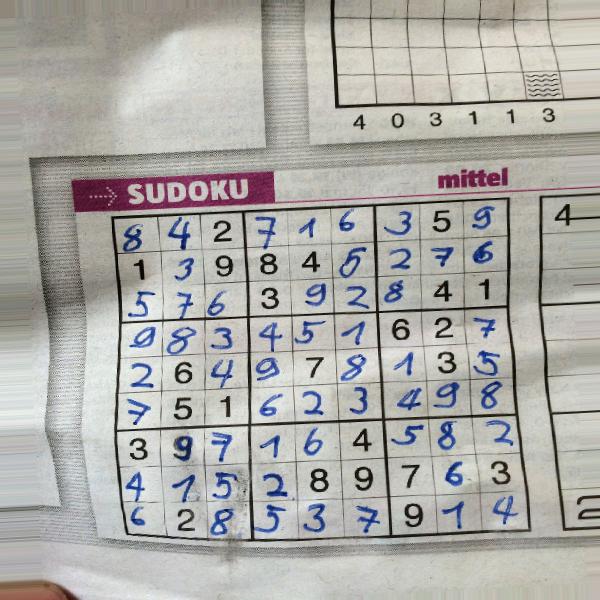 4 0 3 1 1 3
SUDOKU mittel
8 4 2 7 1 6 3 5 9
4
1 3 9 8 4 5 2 7 6
5 7 6 3 9 2 8 4 1
9 8 3 4 5 1 6 2 7
2 6 4 9 7 8 1 3 5
7 5 1 6 2 3 4 9 8
3 9 7 1 6 4 5 8 2
4 1 5 2 8 9 7 6 3
6 2 8 5 3 7 9 1 4